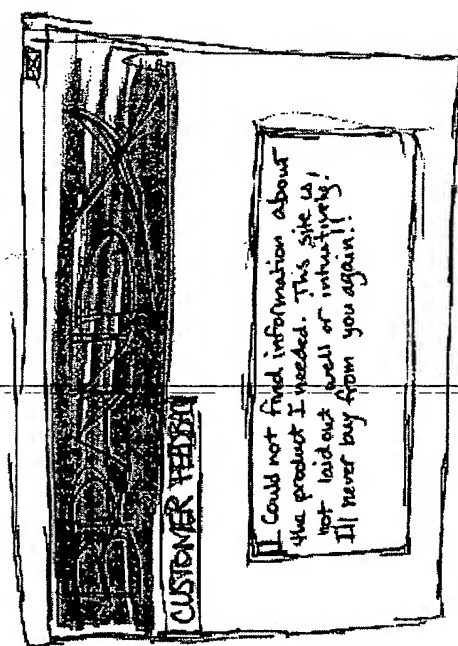 CUSTOMER FEEDBACK
I could not find information about
the product I needed. This site is
not laid out well or intuitively.
I'll never buy from you again!!